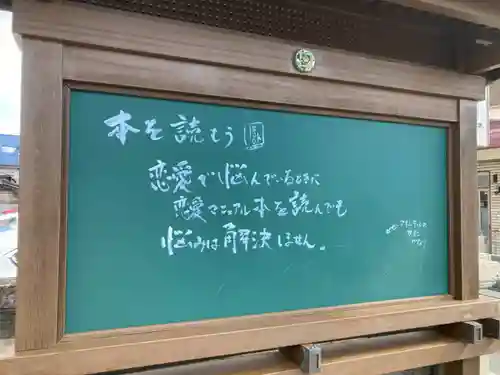 本を読もう
恋愛で悩んでいるときに
恋愛マニュアル本を読んでも
悩みは解決しません。